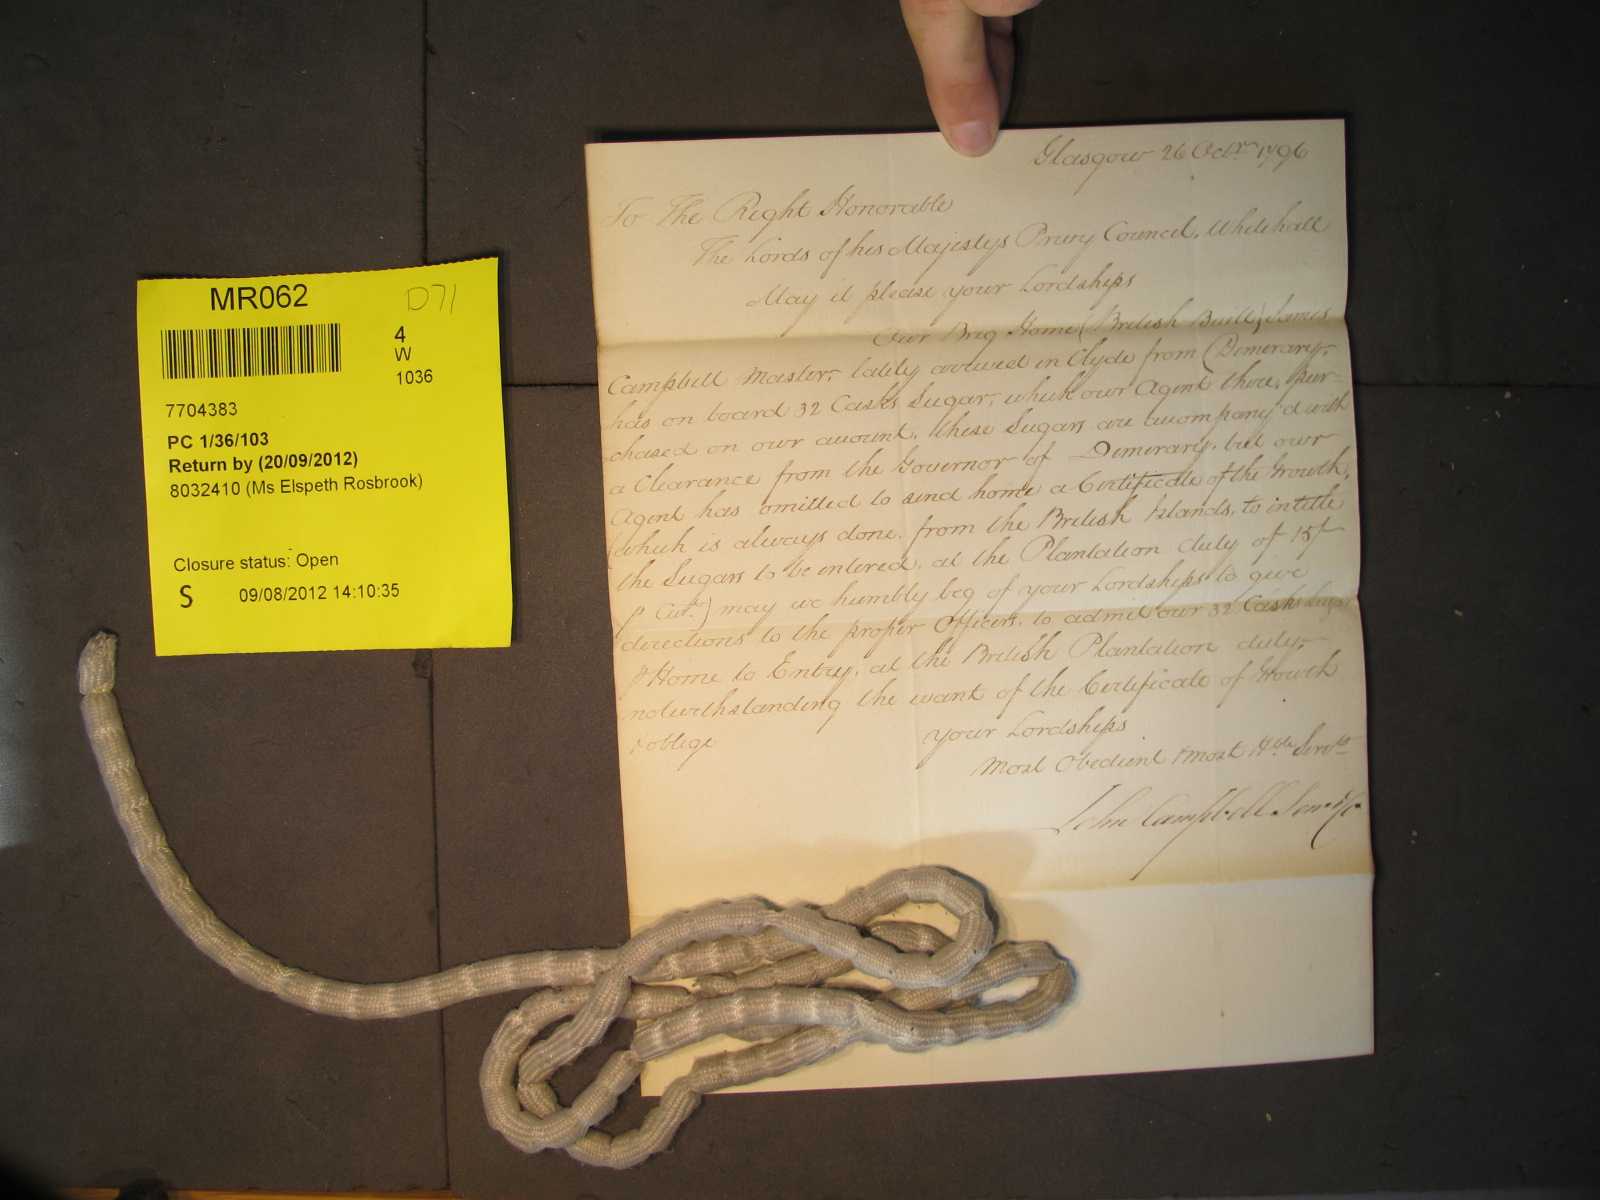 MR062
D71
4
W
1036
7704383
PC 1/36/103
Return by (20/09/2012)
8032410 (Ms Elspeth Rosbrook)
Closure status: Open
S 09/08/2012 14:10:35
Glasgow 26 Octr. 1796
To The Right Honorable
The Lords of his Majestys Privy Council, Whitehall
May it please your Lordships
Our Brig Home (British Built) James
Campbell Master, lately arrived in Clyde from Demerary,
has on board 32 Casks Sugar, which our Agent there, pur-
chased on our account. These Sugars are accompany'd with
a Clearance from the Governor of Demerary, but our
Agent has omitted to send home a Certificate of the Growth,
(which is always done, from the British Islands, to intitle
the Sugars to be entered, at the Plantation duty of 15/
p Cwt.) may we humbly beg of your Lordships to give
directions to the proper Officers, to admit our 32 Casks Sugar
p Home to Entry, at the British Plantation duty,
notwithstanding the want of the Certificate of Growth
& oblige
your Lordships
Most Obedient & most Hble Servts
John Campbell Senr. & Co.